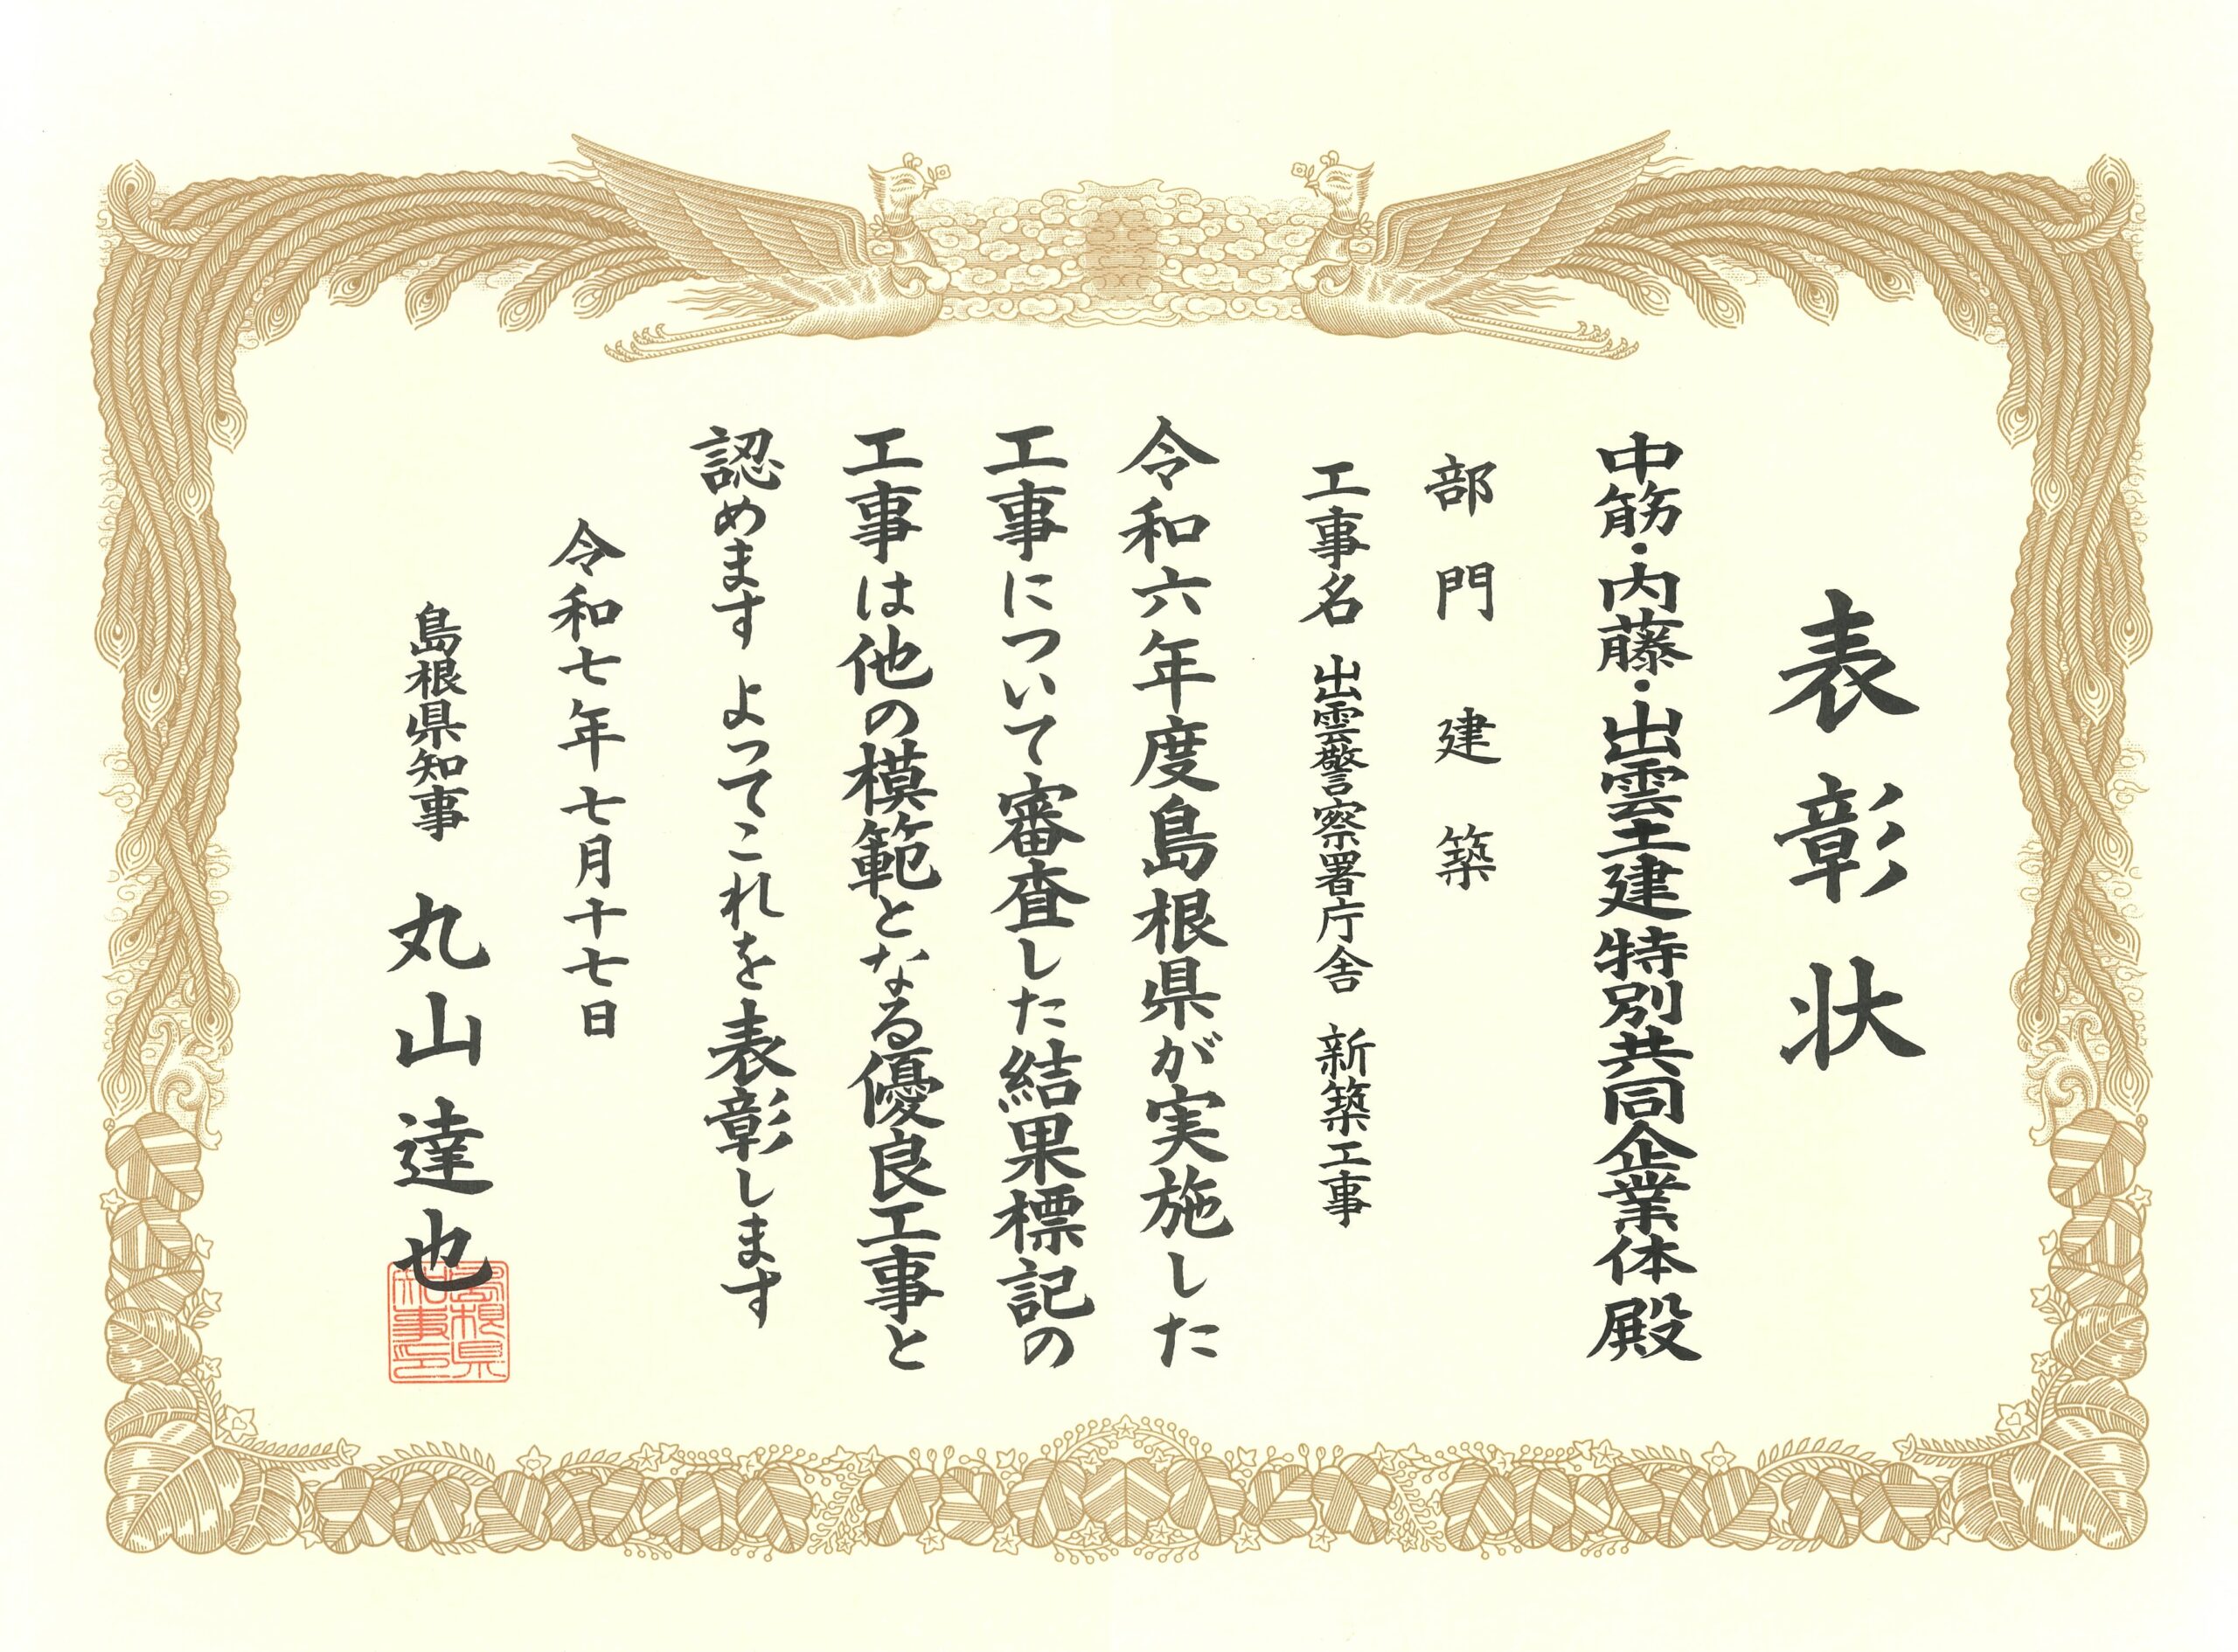 表彰状
中筋・内藤・出雲土建特別共同企業体 殿
部門 建築
工事名 出雲警察署庁舎 新築工事
令和六年度島根県が実施した
工事について審査した結果標記の
工事は他の模範となる優良工事と
認めます よってこれを表彰します
令和七年七月十七日
島根県知事 丸山達也
島根県
知事印